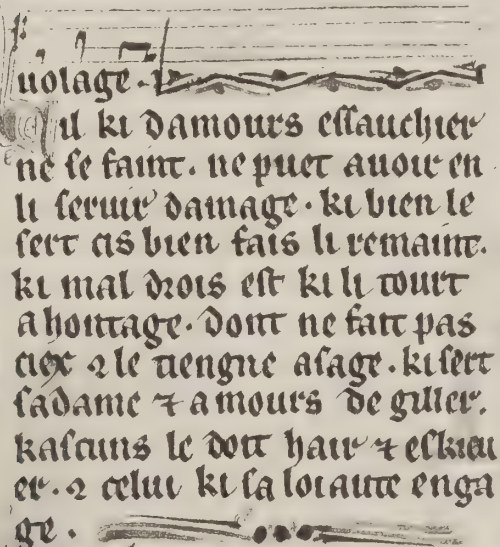 uolage.
Cil ki damours essauchier
ne se faint. ne puet auoir en
li seruir damage. ki bien le
sert cis bien fais li remaint.
ki mal drois est ki li tourt
a hontage. dont ne fait pas
ciex 2 le tiengne asage. ki sert
sadame ⁊ amours de giller.
kascuns le doit hair ⁊ eskieu
er. 2 celui ki sa loiaute enga
ge.